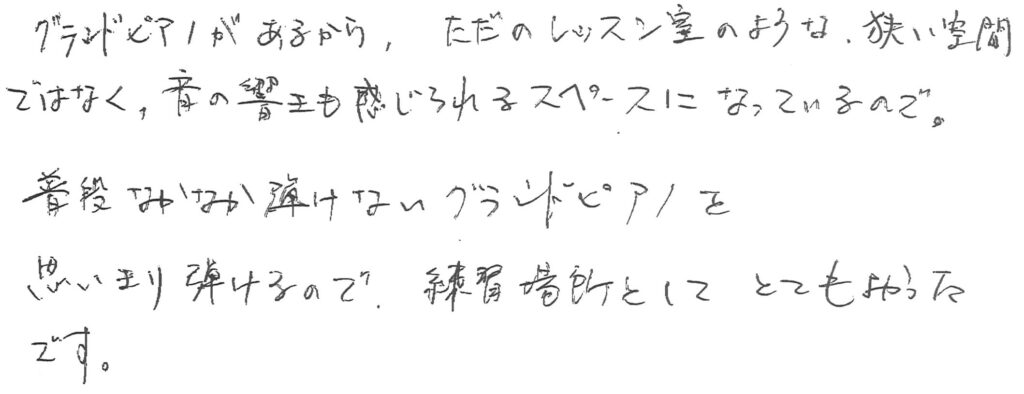 グランドピアノがあるから, ただのレッスン室のような、狭い空間
ではなく, 音の響きも感じられるスペースになっているので。
普段なかなか弾けないグランドピアノを
思いきり弾けるので、練習場所としてとてもよかった
です。